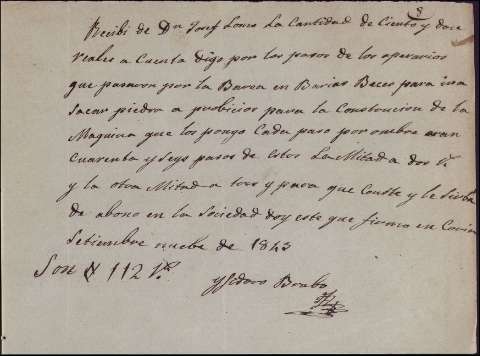 8
Recibi de Dn Josef Lomo La Cantidad de Ciento y doce
reales a Cuenta digo por los pasos de los operarios
que pasaron por la Barca en Barias Beces para ira
Sacar piedra a para la Construcion de la
Maquina que los pongo Cada paso por ombre aran
Cuarenta y Seys pasos de estos La Mitad a dos Rs
y la otra Mitad a tres y para que Conste y le sirba
de abono en la Sociedad doy este que firmo en
Setiembre nuebe de 1843
Son 112 Rs
Ysidoro Brabo